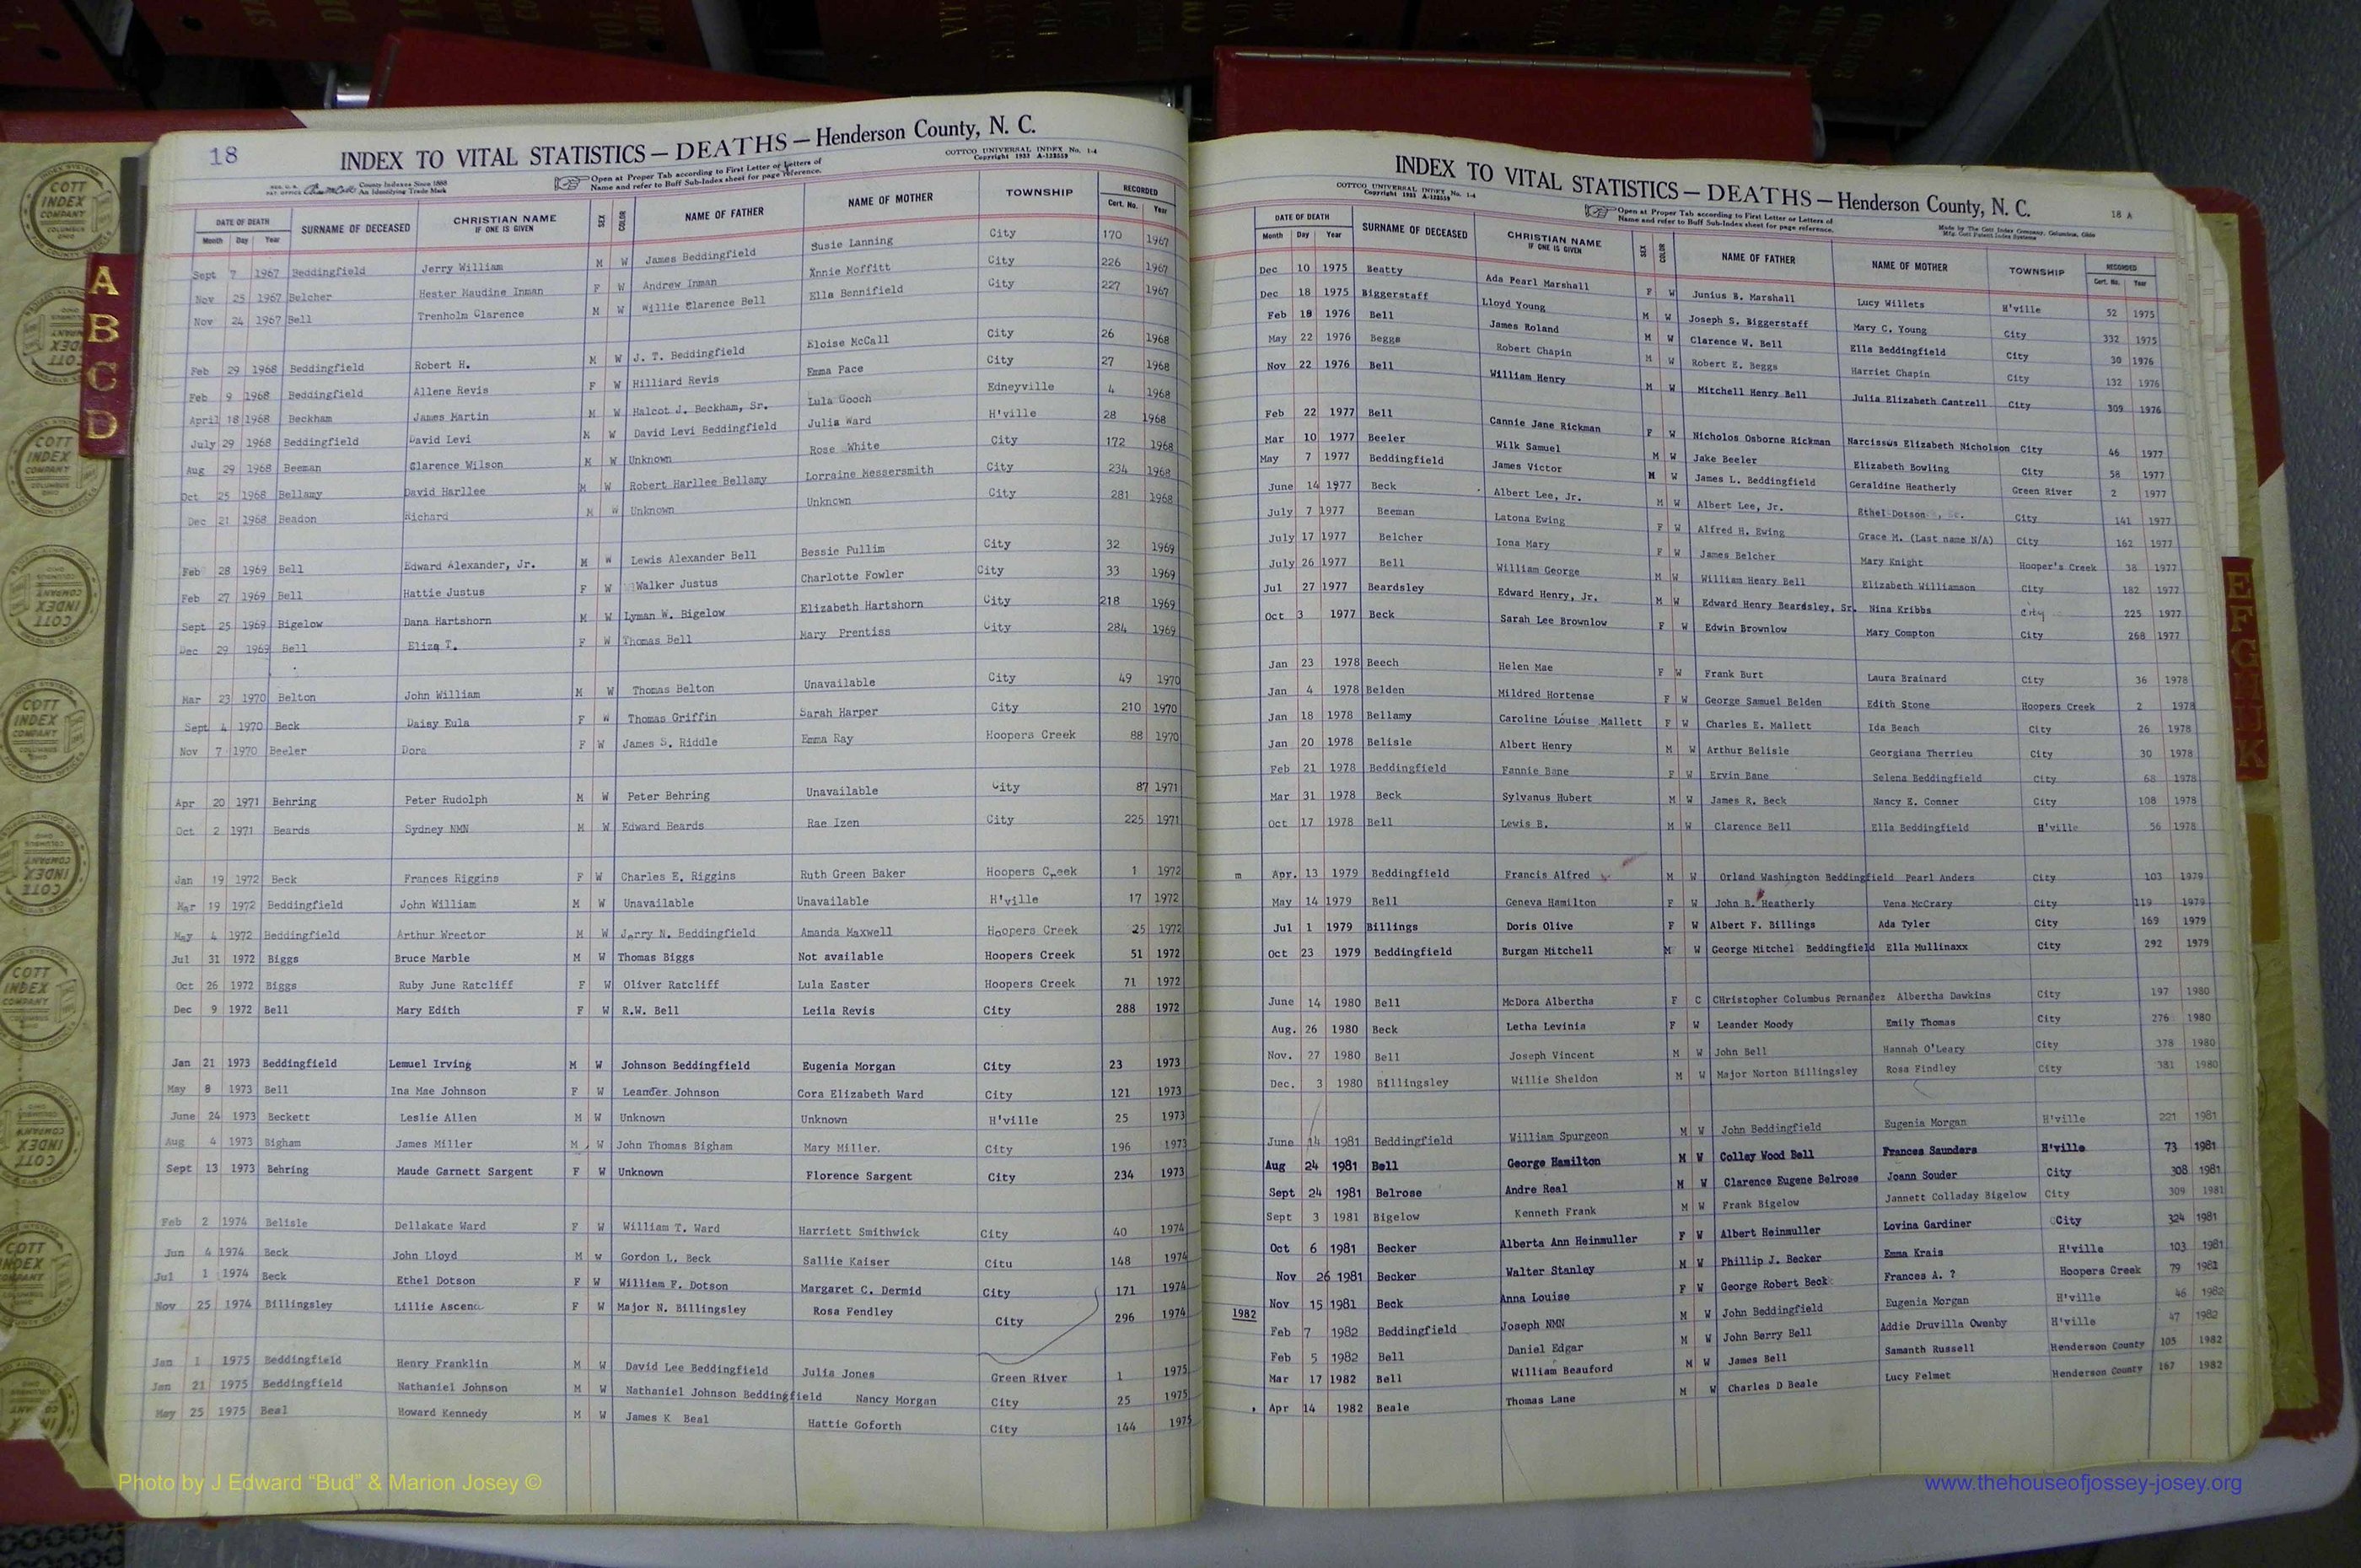 18
INDEX TO VITAL STATISTICS — DEATHS — Henderson County, N. C.
COTTCO UNIVERSAL INDEX No. 1-4
Copyright 1933 A-122559
County Indexes Since 1888
An Identifying Trade Mark
Open at Proper Tab according to First Letter or Letters of
Name and refer to Buff Sub-Index sheet for page reference.
DATE OF DEATH SURNAME OF DECEASED CHRISTIAN NAME IF ONE IS GIVEN SEX COLOR NAME OF FATHER NAME OF MOTHER TOWNSHIP RECORDED
Month Day Year Cert. No. Year
Sept 7 1967 Beddingfield Jerry William M W James Beddingfield Susie Lanning City 170 1967
Nov 25 1967 Belcher Hester Maudine Inman F W Andrew Inman Annie Moffitt City 226 1967
Nov 24 1967 Bell Trenholm Clarence M W Willie Clarence Bell Ella Bennifield City 227 1967
Feb 29 1968 Beddingfield Robert H. M W J. T. Beddingfield Eloise McCall City 26 1968
Feb 9 1968 Beddingfield Allene Revis F W Hilliard Revis Emma Pace City 27 1968
April 18 1968 Beckham James Martin M W Halcot J. Beckham, Sr. Lula Gooch Edneyville 4 1968
July 29 1968 Beddingfield David Levi M W David Levi Beddingfield Julia Ward H'ville 28 1968
Aug 29 1968 Beeman Clarence Wilson M W Unknown Rose White City 172 1968
Oct 25 1968 Bellamy David Harllee M W Robert Harllee Bellamy Lorraine Messersmith City 234 1968
Dec 21 1968 Beadon Richard M W Unknown Unknown City 281 1968
Feb 28 1969 Bell Edward Alexander, Jr. M W Lewis Alexander Bell Bessie Pullim City 32 1969
Feb 27 1969 Bell Hattie Justus F W Walker Justus Charlotte Fowler City 33 1969
Sept 25 1969 Bigelow Dana Hartshorn M W Lyman W. Bigelow Elizabeth Hartshorn City 218 1969
Dec 29 1969 Bell Eliza T. F W Thomas Bell Mary Prentiss City 284 1969
Mar 23 1970 Belton John William M W Thomas Belton Unavailable City 49 1970
Sept 4 1970 Beck Daisy Eula F W Thomas Griffin Sarah Harper City 210 1970
Nov 7 1970 Beeler Dora F W James S. Riddle Emma Ray Hoopers Creek 88 1970
Apr 20 1971 Behring Peter Rudolph M W Peter Behring Unavailable City 87 1971
Oct 2 1971 Beards Sydney NMN M W Edward Beards Rae Izen City 225 1971
Jan 19 1972 Beck Frances Riggins F W Charles E. Riggins Ruth Green Baker Hoopers Creek 1 1972
Mar 19 1972 Beddingfield John William M W Unavailable Unavailable H'ville 17 1972
May 4 1972 Beddingfield Arthur Wrector M W Jerry N. Beddingfield Amanda Maxwell Hoopers Creek 25 1972
Jul 31 1972 Biggs Bruce Marble M W Thomas Biggs Not available Hoopers Creek 51 1972
Oct 26 1972 Biggs Ruby June Ratcliff F W Oliver Ratcliff Lula Easter Hoopers Creek 71 1972
Dec 9 1972 Bell Mary Edith F W R.W. Bell Leila Revis City 288 1972
Jan 21 1973 Beddingfield Lemuel Irving M W Johnson Beddingfield Eugenia Morgan City 23 1973
May 8 1973 Bell Ina Mae Johnson F W Leander Johnson Cora Elizabeth Ward City 121 1973
June 24 1973 Beckett Leslie Allen M W Unknown Unknown H'ville 25 1973
Aug 4 1973 Bigham James Miller M W John Thomas Bigham Mary Miller. City 196 1973
Sept 13 1973 Behring Maude Garnett Sargent F W Unknown Florence Sargent City 234 1973
Feb 2 1974 Belisle Dellakate Ward F W William T. Ward Harriett Smithwick City 40 1974
Jun 4 1974 Beck John Lloyd M W Gordon L. Beck Sallie Kaiser Citu 148 1974
Jul 1 1974 Beck Ethel Dotson F W William F. Dotson Margaret C. Dermid City 171 1974
Nov 25 1974 Billingsley Lillie Ascena F W Major N. Billingsley Rosa Fendley City 296 1974
Jan 1 1975 Beddingfield Henry Franklin M W David Lee Beddingfield Julia Jones Green River 1 1975
Jan 21 1975 Beddingfield Nathaniel Johnson M W Nathaniel Johnson Beddingfield Nancy Morgan City 25 1975
May 25 1975 Beal Howard Kennedy M W James K Beal Hattie Goforth City 144 1975
INDEX TO VITAL STATISTICS — DEATHS — Henderson County, N. C.
18 A
COTTCO UNIVERSAL INDEX No. 1-4
Copyright 1933 A-122559
Open at Proper Tab according to First Letter or Letters of
Name and refer to Buff Sub-Index sheet for page reference.
Made by The Cott Index Company, Columbus, Ohio
Mfg. Cott Patent Index Systems
DATE OF DEATH SURNAME OF DECEASED CHRISTIAN NAME IF ONE IS GIVEN SEX COLOR NAME OF FATHER NAME OF MOTHER TOWNSHIP RECORDED
Month Day Year Cert. No. Year
Dec 10 1975 Beatty Ada Pearl Marshall F W Junius B. Marshall Lucy Willets H'ville 52 1975
Dec 18 1975 Biggerstaff Lloyd Young M W Joseph S. Biggerstaff Mary C. Young City 332 1975
Feb 18 1976 Bell James Roland M W Clarence W. Bell Ella Beddingfield City 30 1976
May 22 1976 Beggs Robert Chapin M W Robert E. Beggs Harriet Chapin City 132 1976
Nov 22 1976 Bell William Henry M W Mitchell Henry Bell Julia Elizabeth Cantrell City 309 1976
Feb 22 1977 Bell Cannie Jane Rickman F W Nicholos Osborne Rickman Narcissus Elizabeth Nicholson City 46 1977
Mar 10 1977 Beeler Wilk Samuel M W Jake Beeler Elizabeth Bowling City 58 1977
May 7 1977 Beddingfield James Victor M W James L. Beddingfield Geraldine Heatherly Green River 2 1977
June 14 1977 Beck Albert Lee, Jr. M W Albert Lee, Jr. Ethel Dotson City 141 1977
July 7 1977 Beeman Latona Ewing F W Alfred H. Ewing Grace M. (Last name N/A) City 162 1977
July 17 1977 Belcher Iona Mary F W James Belcher Mary Knight Hooper's Creek 38 1977
July 26 1977 Bell William George M W William Henry Bell Elizabeth Williamson City 182 1977
Jul 27 1977 Beardsley Edward Henry, Jr. M W Edward Henry Beardsley, Sr. Nina Kribbs City 225 1977
Oct 3 1977 Beck Sarah Lee Brownlow F W Edwin Brownlow Mary Compton City 268 1977
Jan 23 1978 Beech Helen Mae F W Frank Burt Laura Brainard City 36 1978
Jan 4 1978 Belden Mildred Hortense F W George Samuel Belden Edith Stone Hoopers Creek 2 1978
Jan 18 1978 Bellamy Caroline Louise Mallett F W Charles E. Mallett Ida Beach City 26 1978
Jan 20 1978 Belisle Albert Henry M W Arthur Belisle Georgiana Therrieu City 30 1978
Feb 21 1978 Beddingfield Fannie Bane F W Ervin Bane Selena Beddingfield City 68 1978
Mar 31 1978 Beck Sylvanus Hubert M W James R. Beck Nancy E. Conner City 108 1978
Oct 17 1978 Bell Lewis B. M W Clarence Bell Ella Beddingfield H'ville 56 1978
m Apr. 13 1979 Beddingfield Francis Alfred M W Orland Washington Beddingfield Pearl Anders City 103 1979
May 14 1979 Bell Geneva Hamilton F W John B. Heatherly Vena McCrary City 119 1979
Jul 1 1979 Billings Doris Olive F W Albert F. Billings Ada Tyler City 169 1979
Oct 23 1979 Beddingfield Burgan Mitchell M W George Mitchel Beddingfield Ella Mullinaxx City 292 1979
June 14 1980 Bell McDora Albertha F C CHristopher Columbus Fernandez Albertha Dawkins City 197 1980
Aug. 26 1980 Beck Letha Levinia F W Leander Moody Emily Thomas City 276 1980
Nov. 27 1980 Bell Joseph Vincent M W John Bell Hannah O'Leary City 378 1980
Dec. 3 1980 Billingsley Willie Sheldon M W Major Norton Billingsley Rosa Findley City 381 1980
June 14 1981 Beddingfield William Spurgeon M W John Beddingfield Eugenia Morgan H'ville 221 1981
Aug 24 1981 Bell George Hamilton M W Colley Wood Bell Frances Saunders H'ville 73 1981
Sept 24 1981 Belrose Andre Real M W Clarence Eugene Belrose Joann Souder City 308 1981
Sept 3 1981 Bigelow Kenneth Frank M W Frank Bigelow Jannett Colladay Bigelow City 309 1981
Oct 6 1981 Becker Alberta Ann Heinmuller F W Albert Heinmuller Lovina Gardiner City 324 1981
Nov 26 1981 Becker Walter Stanley M W Phillip J. Becker Emma Krais H'ville 103 1981
Nov 15 1981 Beck Anna Louise F W George Robert Beck Frances A. ? Hoopers Creek 79 1981
1982
Feb 7 1982 Beddingfield Joseph NMN M W John Beddingfield Eugenia Morgan H'ville 46 1982
Feb 5 1982 Bell Daniel Edgar M W John Berry Bell Addie Druvilla Owenby H'ville 47 1982
Mar 17 1982 Bell William Beauford M W James Bell Samanth Russell Henderson County 105 1982
Apr 14 1982 Beale Thomas Lane M W Charles D Beale Lucy Felmet Henderson County 167 1982
A
B
C
D
E
F
G
H
IJ
K
COTT INDEX COMPANY
Photo by J Edward “Bud” & Marion Josey ©
www.thehouseofjossey-josey.org